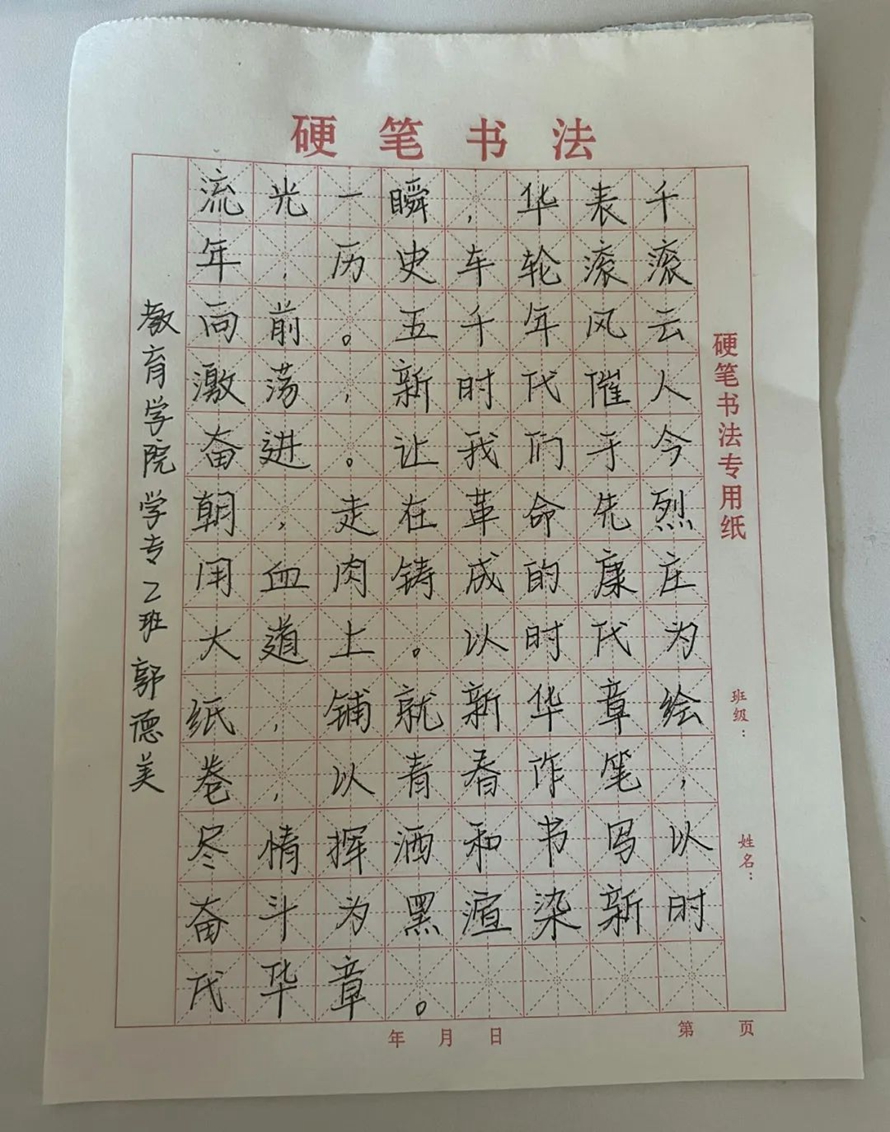 硬笔书法
流光一瞬，华表千
年，历史车轮滚滚
向前。五千年风云
激荡，新时代催人
奋进。让我们于今
朝，走在革命先烈
用血肉铸成的康庄
大道上。以时代为
纸，铺就新华章绘
卷，以青春作笔，
尽情挥洒和书写以
奋斗为黑渲染新时
代华章。
教育学院学专乙班郭德美
硬笔书法专用纸
班级：
姓名：
年 月 日
第 页